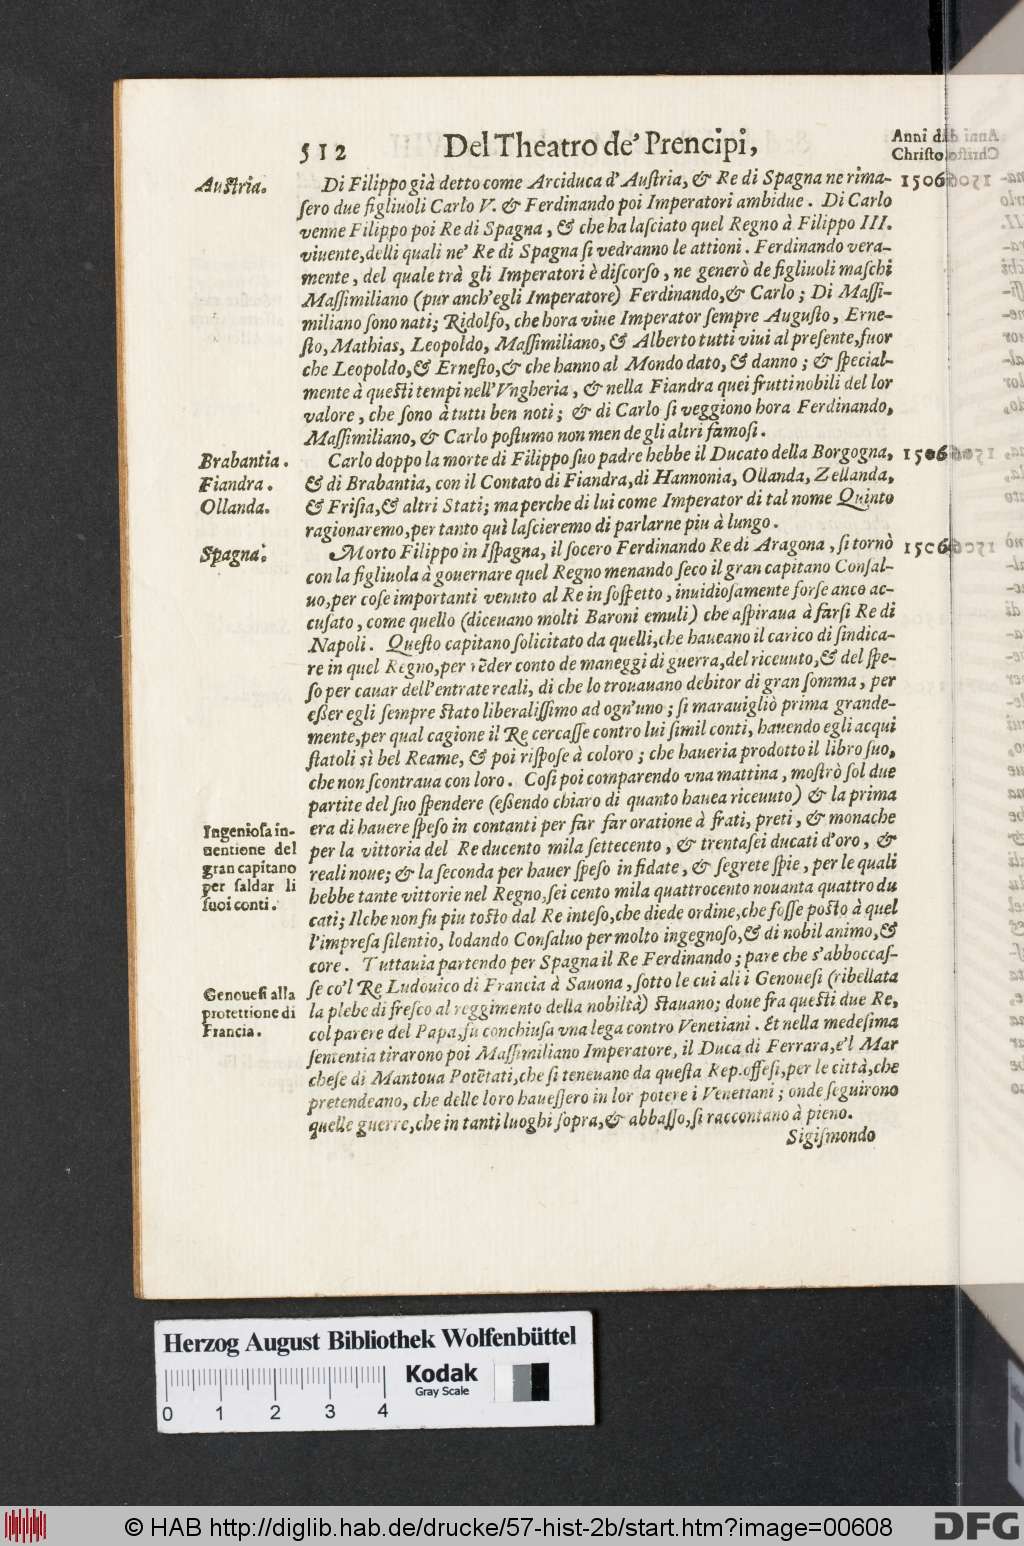 512 Del Theatro de' Prencipi, Anni di
Christo.
Auſtria. Di Filippo già detto come Arciduca d'Auſtria, & Re di Spagna ne rima- 1506
ſero due figliuoli Carlo V. & Ferdinando poi Imperatori ambidue. Di Carlo
venne Filippo poi Re di Spagna, & che ha laſciato quel Regno à Filippo III.
viuente, delli quali ne' Re di Spagna ſi vedranno le attioni. Ferdinando vera-
mente, del quale trà gli Imperatori è diſcorſo, ne generò de figliuoli maſchi
Maſſimiliano (pur anch'egli Imperatore) Ferdinando, & Carlo; Di Maſſi-
miliano ſono nati; Ridolfo, che hora viue Imperator ſempre Auguſto, Erne-
ſto, Mathias, Leopoldo, Maſſimiliano, & Alberto tutti viui al preſente, fuor
che Leopoldo, & Erneſto, & che hanno al Mondo dato, & danno; & ſpecial-
mente à queſti tempi nell'Vngheria, & nella Fiandra quei frutti nobili del lor
valore, che ſono à tutti ben noti; & di Carlo ſi veggiono hora Ferdinando,
Maſſimiliano, & Carlo poſtumo non men de gli altri famoſi.
Brabantia. Carlo doppo la morte di Filippo ſuo padre hebbe il Ducato della Borgogna, 1506
Fiandra. & di Brabantia, con il Contato di Fiandra, di Hannonia, Ollanda, Zellanda,
Ollanda. & Friſia, & altri Stati; ma perche di lui come Imperator di tal nome Quinto
ragionaremo, per tanto quì laſcieremo di parlarne piu à lungo.
Spagna. Morto Filippo in Iſpagna, il ſocero Ferdinando Re di Aragona, ſi tornò 1506
con la figliuola à gouernare quel Regno menando ſeco il gran capitano Conſal-
uo, per coſe importanti venuto al Re in ſoſpetto, inuidioſamente forſe anco ac-
cuſato, come quello (diceuano molti Baroni emuli) che aſpiraua à farſi Re di
Napoli. Queſto capitano ſolicitato da quelli, che haueano il carico di ſindica-
re in quel Regno, per rēder conto de maneggi di guerra, del riceuuto, & del ſpe-
ſo per cauar dell'entrate reali, di che lo trouauano debitor di gran ſomma, per
eſſer egli ſempre ſtato liberaliſſimo ad ogn'uno; ſi marauigliò prima grande-
mente, per qual cagione il Re cercaſſe contro lui ſimil conti, hauendo egli acqui
ſtatoli sì bel Reame, & poi riſpoſe à coloro; che haueria prodotto il libro ſuo,
che non ſcontraua con loro. Coſi poi comparendo vna mattina, moſtrò ſol due
partite del ſuo ſpendere (eſſendo chiaro di quanto hauea riceuuto) & la prima
Ingenioſa in- era di hauere ſpeſo in contanti per far far oratione à frati, preti, & monache
uentione del per la vittoria del Re ducento mila ſettecento, & trentaſei ducati d'oro, &
gran capitano reali noue; & la ſeconda per hauer ſpeſo in fidate, & ſegrete ſpie, per le quali
per ſaldar li hebbe tante vittorie nel Regno, ſei cento mila quattrocento nouanta quattro du
ſuoi conti. cati; Ilche non fu piu toſto dal Re inteſo, che diede ordine, che foſſe poſto à quel
l'impreſa ſilentio, lodando Conſaluo per molto ingegnoſo, & di nobil animo, &
core. Tuttauia partendo per Spagna il Re Ferdinando; pare che s'abboccaſ-
Genoueſi alla ſe co'l Re Ludouico di Francia à Sauona, ſotto le cui ali i Genoueſi (ribellata
protettione di la plebe di freſco al reggimento della nobiltà) ſtauano; doue fra queſti due Re,
Francia. col parere del Papa, fu conchiuſa vna lega contro Venetiani. Et nella medeſima
ſententia tirarono poi Maſſimiliano Imperatore, il Duca di Ferrara, e'l Mar
cheſe di Mantoua Potētati, che ſi teneuano da queſta Rep. offeſi, per le città, che
pretendeano, che delle loro haueſſero in lor potere i Venetiani; onde ſeguirono
quelle guerre, che in tanti luoghi ſopra, & abbaſſo, ſi raccontano à pieno.
Sigiſmondo
Herzog August Bibliothek Wolfenbüttel
Kodak
Gray Scale
0 1 2 3 4
© HAB http://diglib.hab.de/drucke/57-hist-2b/start.htm?image=00608 DFG